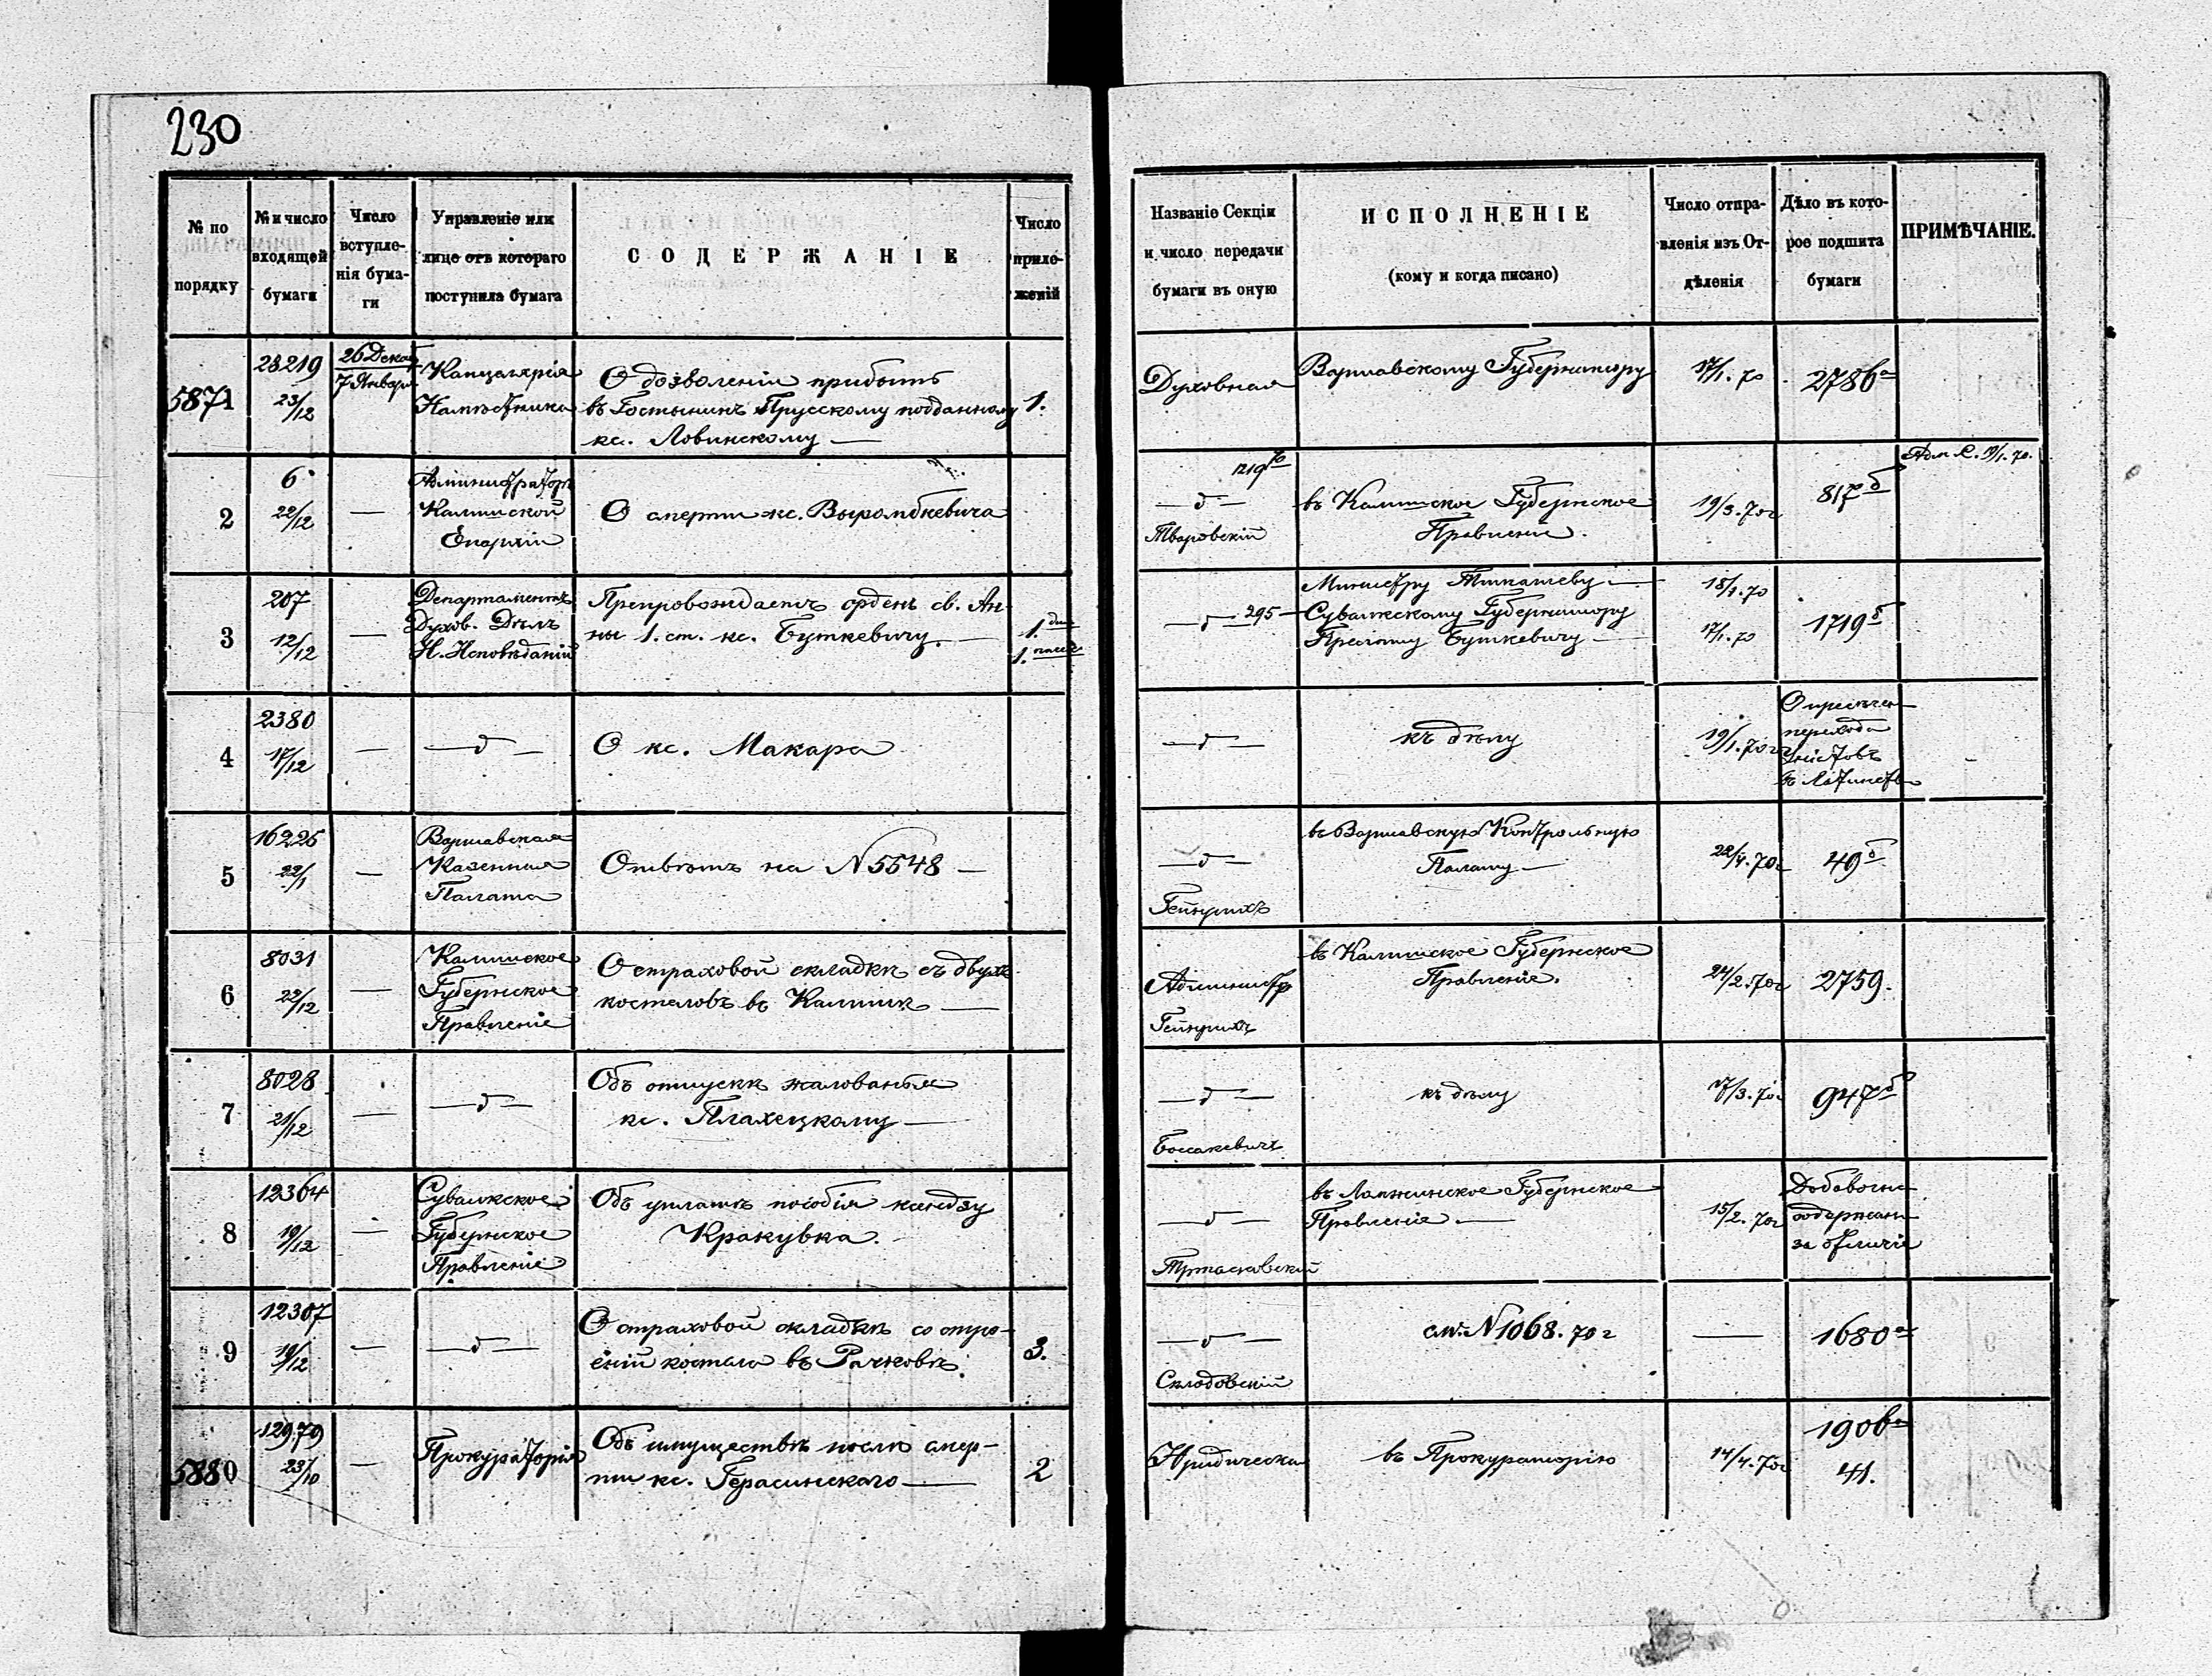 230
№ по порядку
№ и число входящей бумаги
Число вступле-нія бума-ги
Управленіе или лице отъ котораго поступила бумага
СОДЕРЖАНІЕ
Число прило-женій
Названіе Секціи и число передачи бумаги въ оную
ИСПОЛНЕНІЕ
(кому и когда писано)
Число отпра-вленія изъ От-дѣленія
Дѣло въ кото-рое подшита бумаги
ПРИМѢЧАНІЕ.
5871
23219
23/12
26 Декаб
7 Январ
Канцелярія
Намѣстника
О дозволеніи прибыть
въ Гостынинъ Прусскому подданному
кс. Ловинскому —
1.
Духовная
Варшавскому Губернатору
17/1. 70
2786а
2
6
22/12
—
Администраторъ
Калишской
Епархіи
О смерти кс.
1219 70
— д —
Тваровскій
въ Калишское Губернское
Правленіе.
19/3. 70г
817б
Адм. С. 19/1. 70.
3
207
12/12
—
Департаментъ
Духов. Дѣлъ
И. Исповѣданій
Препровождаетъ орденъ св. Ан-
ны 1. ст. кс. Буткевичу. —
1.
1.
— д — 295
Министру Тимашеву —
Сувалкскому Губернатору
Прелату Буткевичу —
18/1. 70
17/1. 70
1719б
4
2380
17/12
—
— д —
О кс. Макара
— д —
къ дѣлу
19/1. 70г
О пресѣчен
перехода
Уніатовъ
въ Латинств
5
16225
22/1
—
Варшавская
Казенная
Палата
Отвѣтъ на N 5548 —
— д —
Гейнрихъ
въ Варшавскую Контрольную
Палату —
22/4. 70г
49б
6
8031
22/12
—
Калишское
Губернское
Правленіе
О страховой складкѣ съ двухъ
костеловъ въ Калишѣ —
Администр
Гейнрихъ
въ Калишское Губернское
Правленіе.
24/2. 70г
2759.
7
8028
21/12
—
— д —
Объ отпускѣ жалованья
кс. Плахецкому —
— д —
къ дѣлу
17/3. 70г
947б
8
12364
19/12
—
Сувалкское
Губернское
Правленіе
Объ уплатѣ пособія ксендзу
Кракувка.
— д —
въ Ломжинское Губернское
Правленіе. —
15/2. 70г
Добавочн
содержан
за отличіе
9
12307
19/12
—
— д —
О страховой складкѣ со стро-
еній костела въ Рачковѣ.
3.
— д —
Склодовскій
см. N 1068. 70 г
—
1680а
5880
12979
23/10
—
Прокураторія
Объ имуществѣ послѣ смер-
ти кс. Герасинскаго —
2
Юридическа
въ Прокураторію
14/4. 70г
1906а
41.